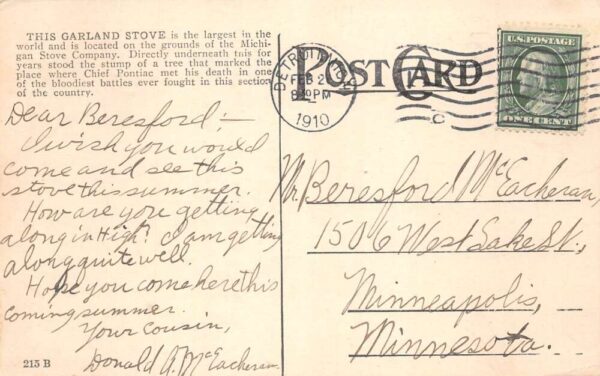 THIS GARLAND STOVE is the largest in the
world and is located on the grounds of the Michi-
gan Stove Company. Directly underneath this for
years stood the stump of a tree that marked the
place where Chief Pontiac met his death in one
of the bloodiest battles ever fought in this section
of the country.
Dear Beresford;—
I wish you would
come and see this
stove this summer.
How are you getting
along in High? I am getting
along quite well.
Hope you come here this
coming summer.
Your Cousin,
Donald A. McEacheran.
215 B
POST CARD
DETROIT, MICH.
FEB 2
8 PM
1910
U.S. POSTAGE
ONE CENT
Mr. Beresford McEacheran,
1506 West Lake St.,
Minneapolis,
Minnesota.